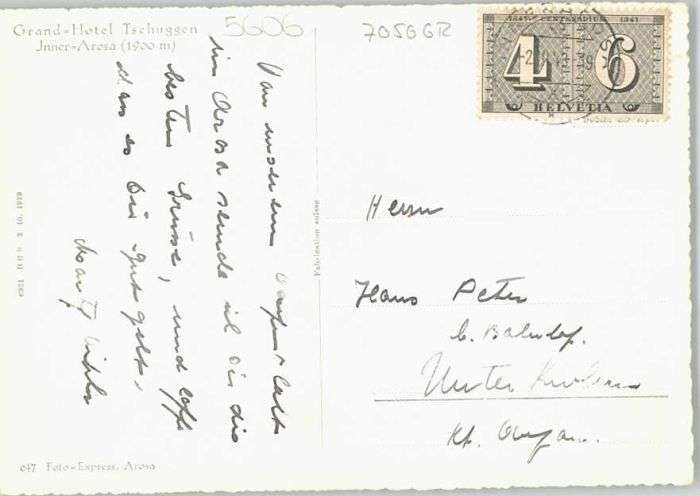 5606
7050GR
Grand-Hotel Tschuggen
Jnner-Arosa (1900 m)
1843 CENTENARIUM 1943
4 6
HELVETIA
Von unserem
in Arosa sende ich Dir die
besten Grüsse, und hoffe
dass es Dir gut geht.
Fabrication suisse
Herrn
Hans Peter
b. Bahnhof.
Unter
Kt. Aargau.
647 Foto-Express, Arosa